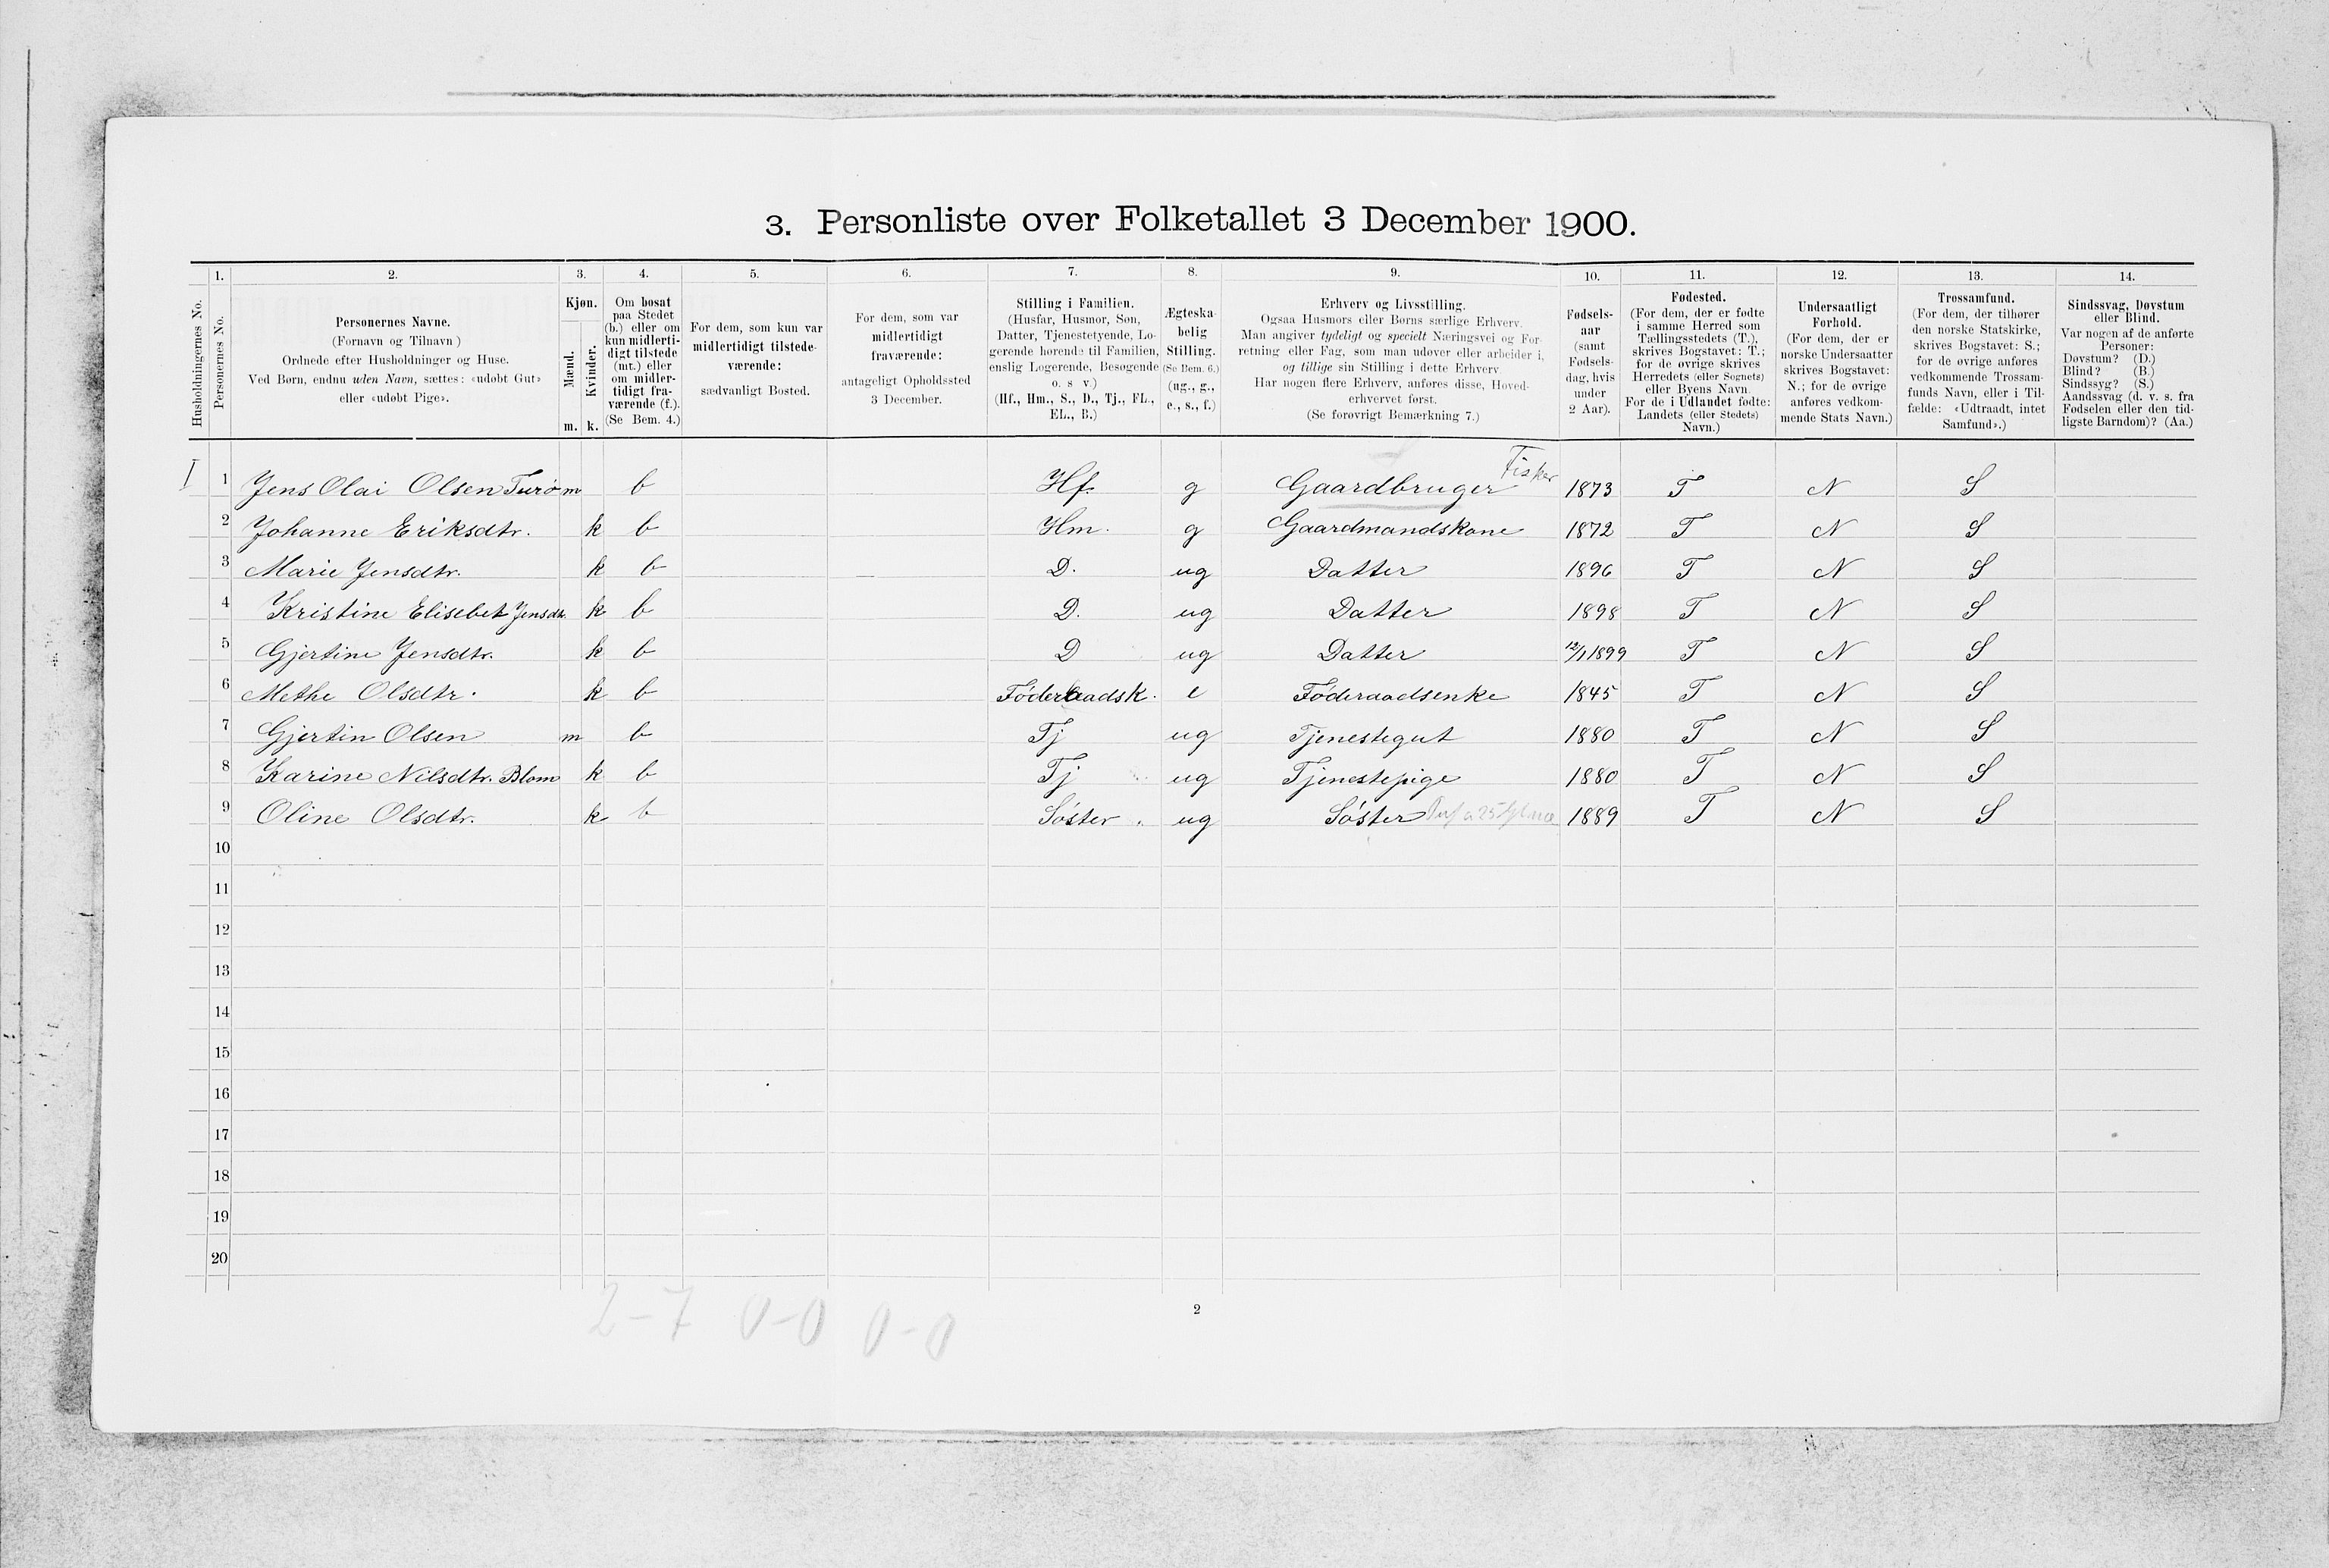 3. Personliste over Folketallet 3 December 1900.
Husholdningernes No.
1. Personernes No.
2. Personernes Navne.
(Fornavn og Tilnavn)
Ordnede efter Husholdninger og Huse.
Ved Børn, endnu uden Navn, sættes: «udøbt Gut»
eller «udøbt Pige».
3. Kjøn.
Mænd. m.
Kvinder. k.
4. Om bosat
paa Stedet
(b.) eller om
kun midlerti-
digt tilstede
(mt.) eller
om midler-
tidigt fra-
værende (f.).
(Se Bem. 4.)
5. For dem, som kun var
midlertidigt tilstede-
værende:
sædvanligt Bosted.
6. For dem, som var
midlertidigt
fraværende:
antageligt Opholdssted
3 December.
7. Stilling i Familien.
(Husfar, Husmor, Søn,
Datter, Tjenestetyende, Lo-
gerende hørende til Familien,
enslig Logerende, Besøgende
o. s v.)
(Hf., Hm., S., D., Tj., FL.,
EL., B.)
8. Ægteska-
belig
Stilling.
(Se Bem. 6.)
(ug., g.,
e., s., f.)
9. Erhverv og Livsstilling.
Ogsaa Husmors eller Børns særlige Erhverv.
Man angiver tydeligt og specielt Næringsvei og For-
retning eller Fag, som man udøver eller arbeider i,
og tillige sin Stilling i dette Erhverv
Har nogen flere Erhverv, anføres disse, Hoved-
erhvervet først.
(Se forøvrigt Bemærkning 7.)
10. Fødsels-
aar
(samt
Fødsels-
dag, hvis
under
2 Aar).
11. Fødested.
(For dem, der er fødte
i samme Herred som
Tællingsstedets (T.),
skrives Bogstavet: T.;
for de øvrige skrives
Herredets (eller Sognets)
eller Byens Navn
For de i Udlandet fødte:
Landets (eller Stedets)
Navn.)
12. Undersaatligt
Forhold.
(For dem, der er
norske Undersaatter
skrives Bogstavet:
N.; for de øvrige
anføres vedkom-
mende Stats Navn.)
13. Trossamfund.
(For dem, der tilhører
den norske Statskirke,
skrives Bogstavet: S.;
for de øvrige anføres
vedkommende Trossam-
funds Navn, eller i Til-
fælde: «Udtraadt, intet
Samfund».)
14. Sindssvag, Døvstum
eller Blind.
Var nogen af de anførte
Personer:
Døvstum? (D.)
Blind? (B.)
Sindssyg? (S.)
Aandssvag (d. v. s. fra
Fødselen eller den tid-
ligste Barndom)? (Aa.)
I 1 Jens Olai Olsen Turø m b Hf. g Gaardbruger Fisker 1873 T N S
2 Johanne Eriksdtr. k b Hm. g Gaardmandskone 1872 T N S
3 Marie Jensdtr. k b D. ug Datter 1896 T N S
4 Kristine Elisebet Jensdtr. k b D. ug Datter 1898 T N S
5 Gjertine Jensdtr. k b D ug Datter 12/1 1899 T N S
6 Methe Olsdtr. k b Föderaadsk. e Föderaadsenke 1845 T N S
7 Gjertin Olsen m b Tj ug Tjenestegut 1880 T N S
8 Karine Nilsdtr. Blom k b Tj ug Tjenestepige 1880 T N S
9 Oline Olsdtr. k b Söster. ug Söster 1889 T N S
10
11
12
13
14
15
16
17
18
19
20
2-7 0-0 0-0
2